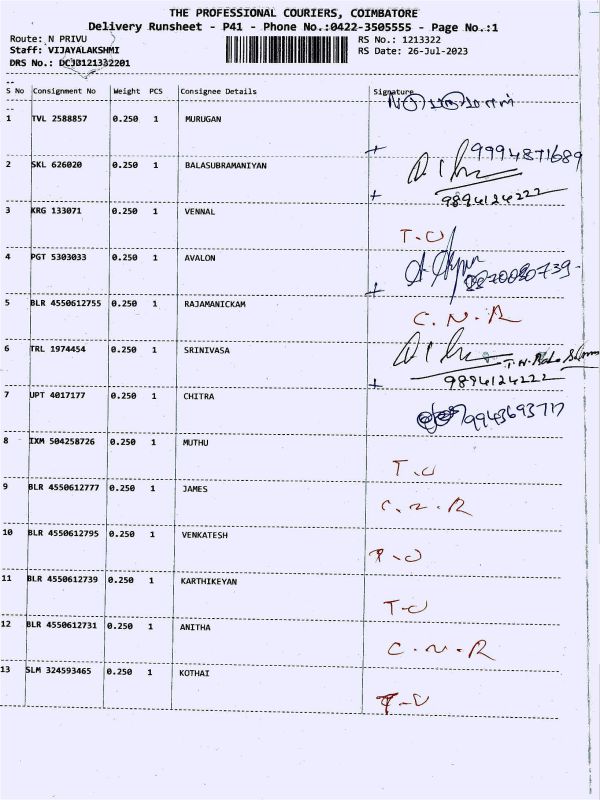 THE PROFESSIONAL COURIERS, COIMBATORE
Delivery Runsheet - P41 - Phone No.:0422-3505555 - Page No.:1
Route: N PRIVU RS No.: 1213322
Staff: VIJAYALAKSHMI RS Date: 26-Jul-2023
DRS No.:
S No Consignment No Weight PCS Consignee Details Signature
1 TVL 2588857 0.250 1 MURUGAN
9994871689
2 SKL 626020 0.250 1 BALASUBRAMANIYAN
9894124222
3 KRG 133071 0.250 1 VENNAL T.O
4 PGT 5303033 0.250 1 AVALON
5 BLR 4550612755 0.250 1 RAJAMANICKAM C.N.R
6 TRL 1974454 0.250 1 SRINIVASA
9894124222
7 UPT 4017177 0.250 1 CHITRA 9943693717
8 IXM 504258726 0.250 1 MUTHU T.O
9 BLR 4550612777 0.250 1 JAMES C.N.R
10 BLR 4550612795 0.250 1 VENKATESH T.O
11 BLR 4550612739 0.250 1 KARTHIKEYAN T-O
12 BLR 4550612731 0.250 1 ANITHA C.N.R
13 SLM 324593465 0.250 1 KOTHAI T-O